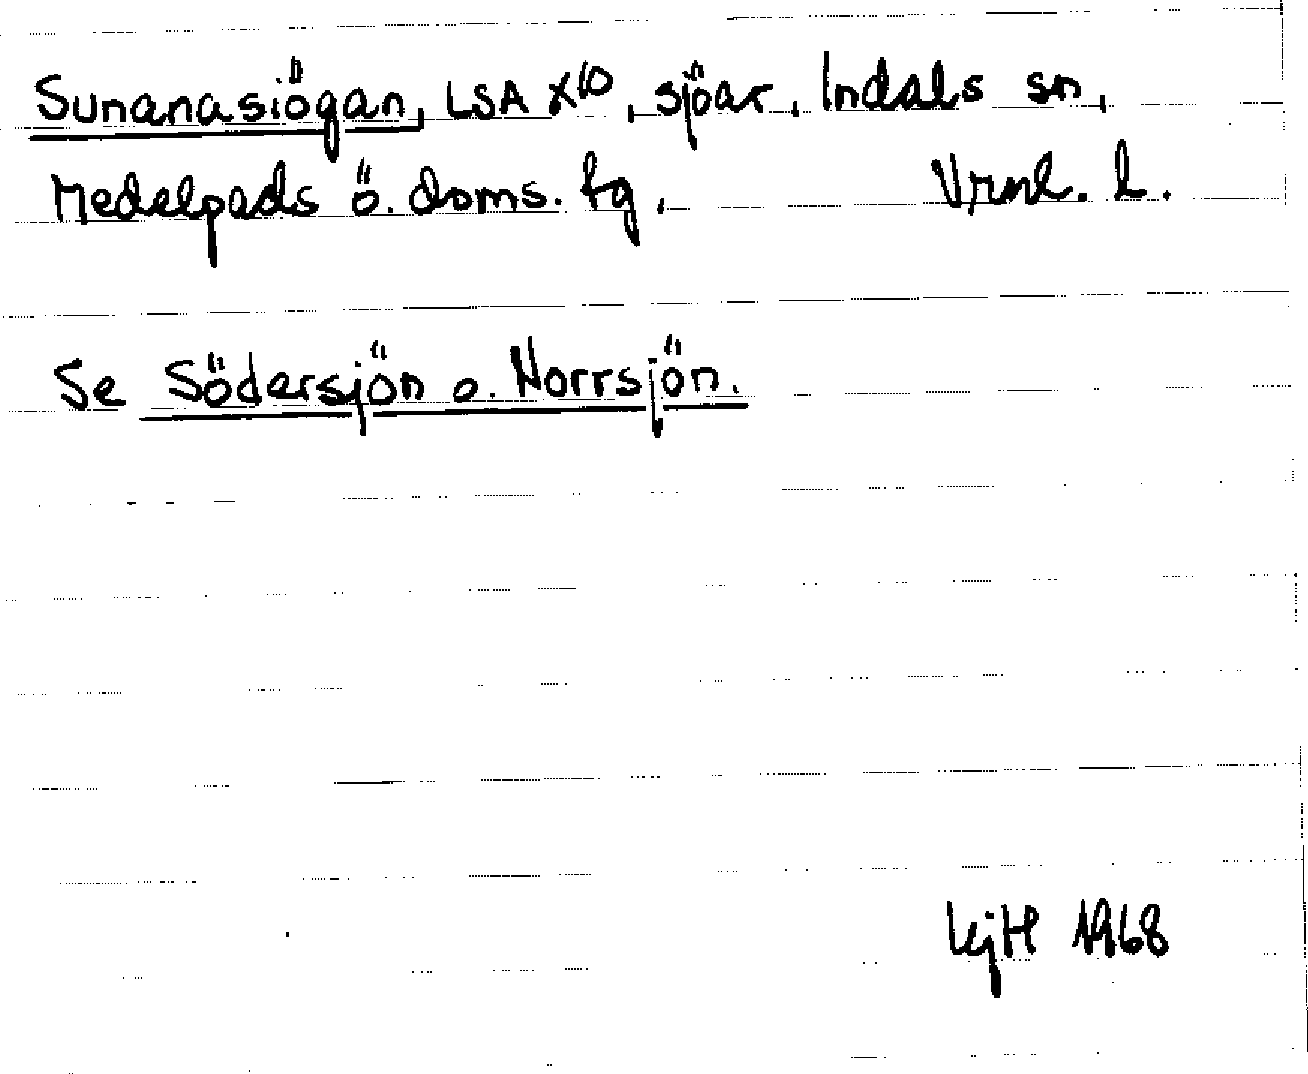 Sunanasiögan, LSA X10, sjöar, Indals sn,
Medelpads ö. doms. fg. Vrnl. l.
Se Södersjön o. Norrsjön.
1968